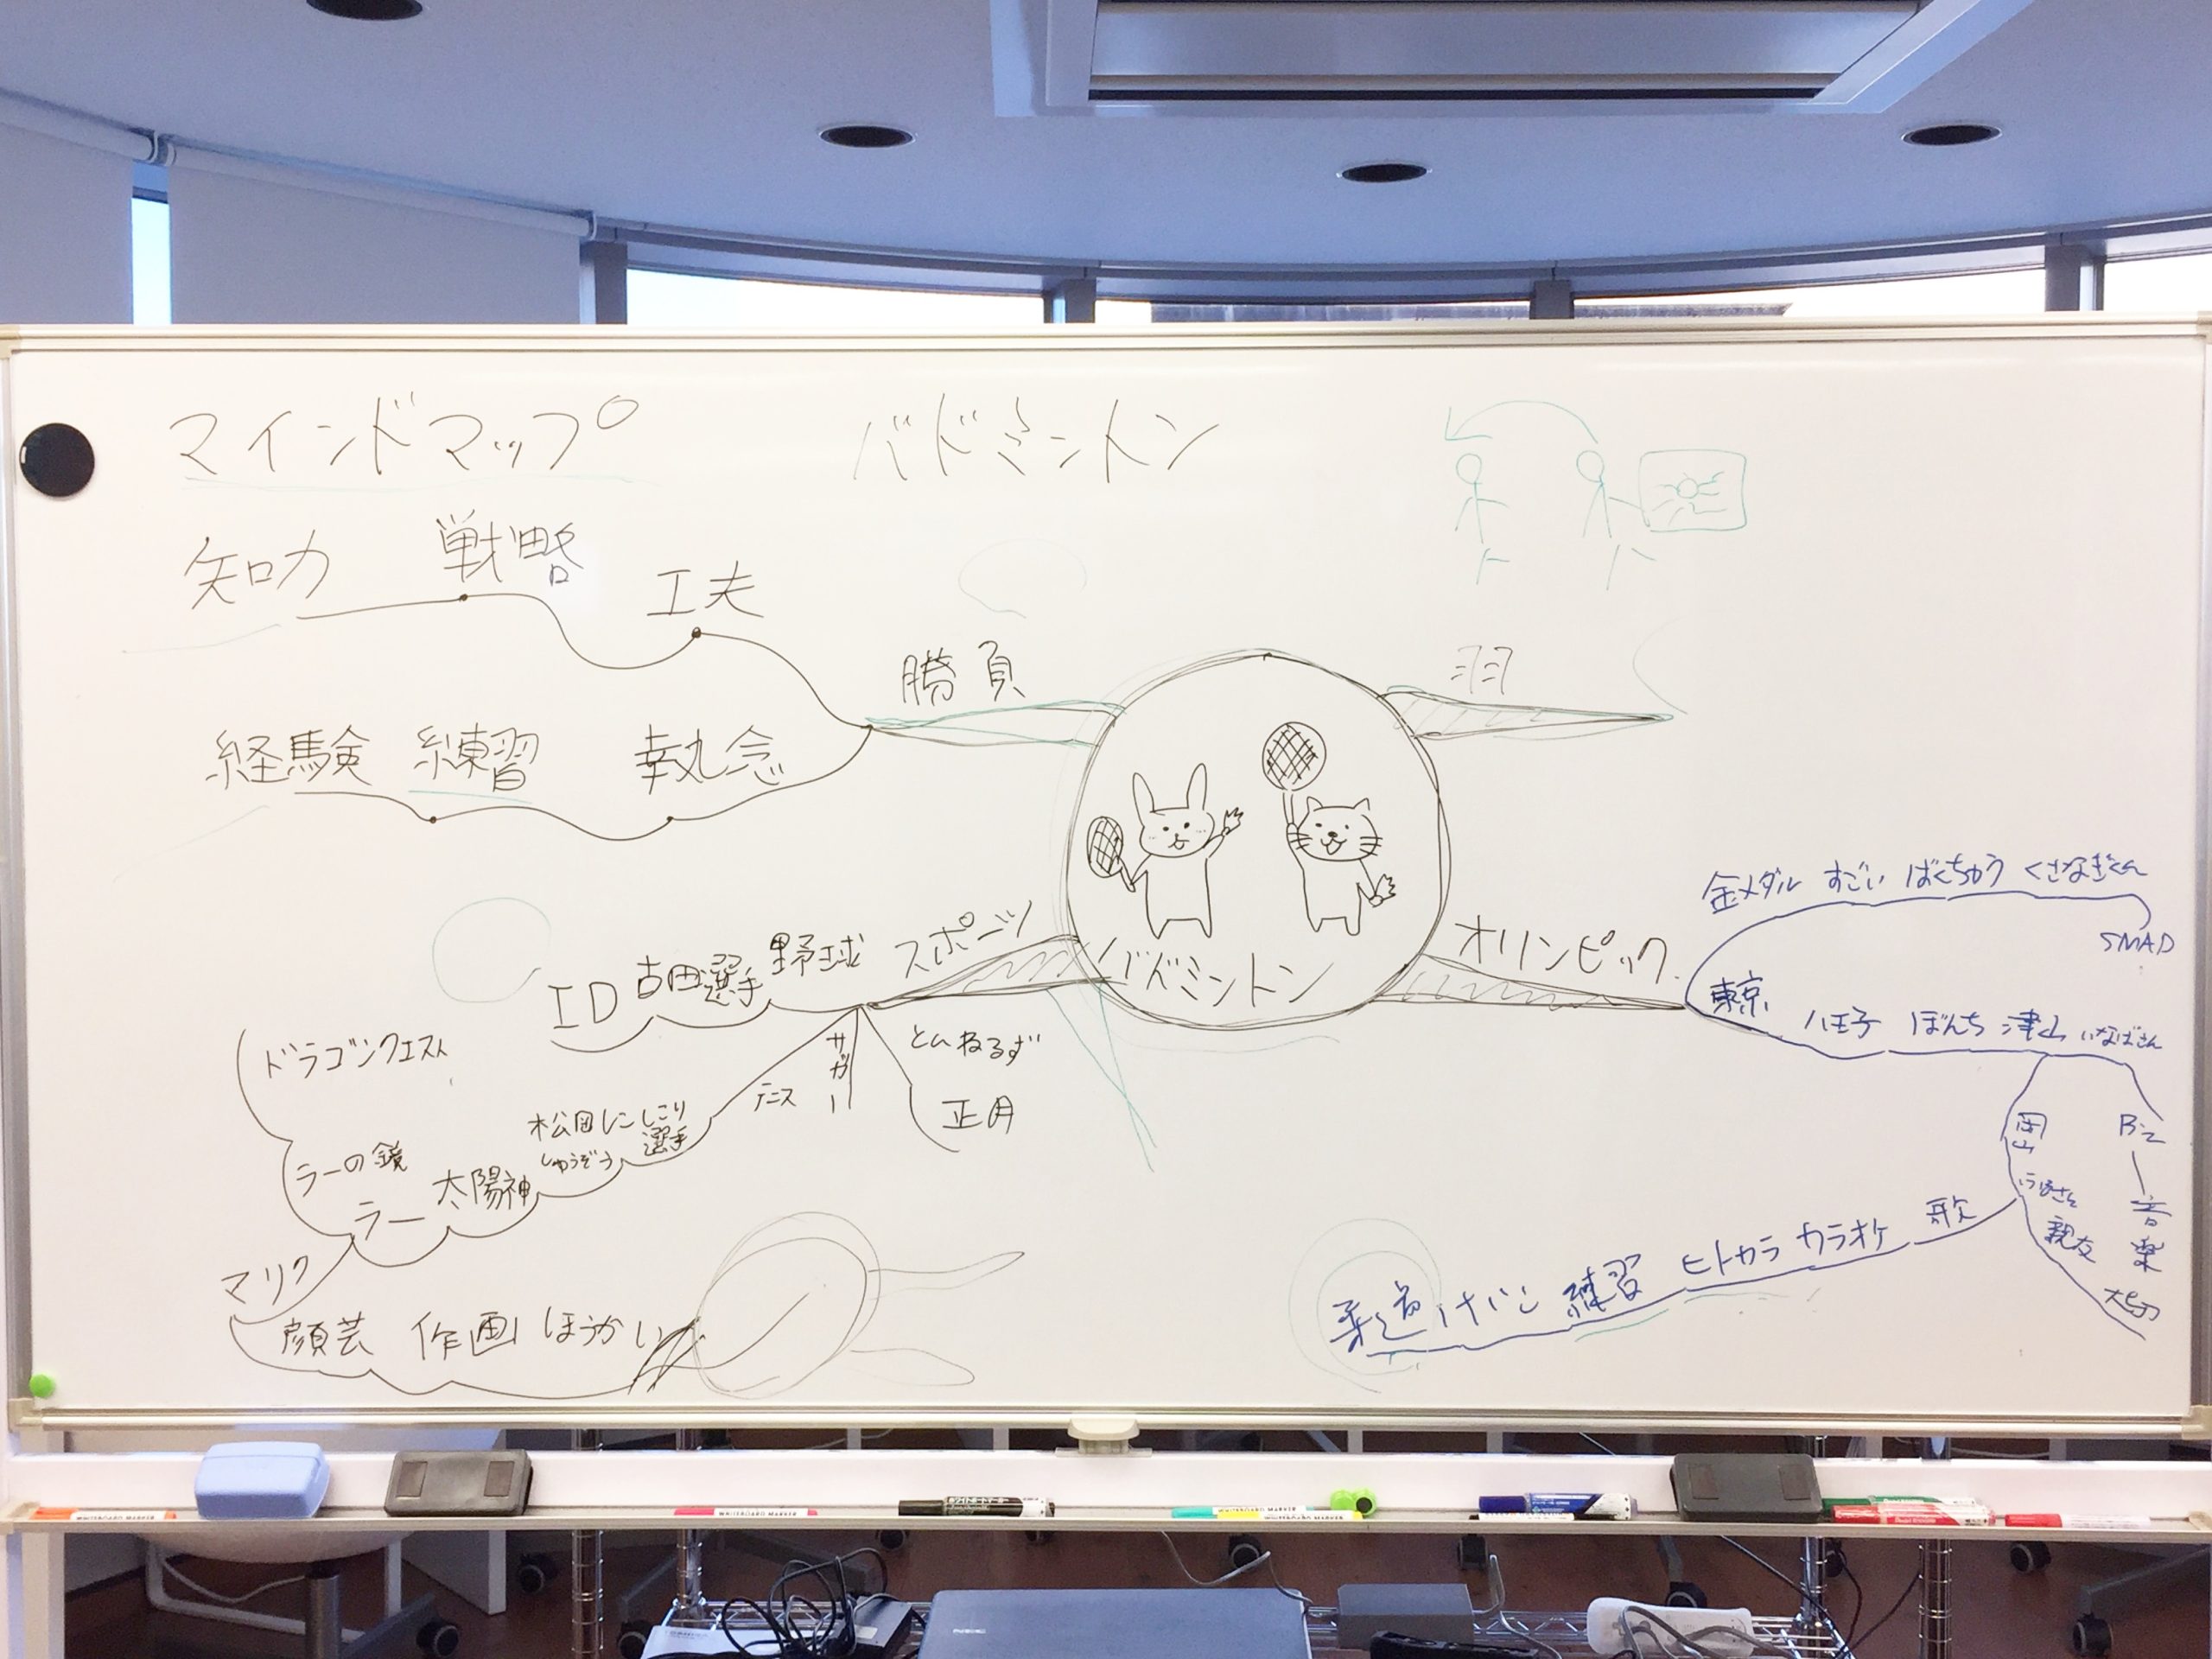 マインドマップ
バドミントン
知力
戦略
工夫
勝負
羽
経験
練習
執念
金メダル
すごい
ばくちゅう
くさなぎくん
SMAP
ID
古田選手
野球
スポーツ
バドミントン
オリンピック
東京
八王子
ぼんち
津山
いなばさん
ドラゴンクエスト
サガー
とんねるず
テニス
正月
松岡
しゅうぞう
にしこり
選手
岡山
B'z
ラーの鏡
太陽神
ラー
親友
音楽
大切
マリク
歌
カラオケ
ヒトカラ
練習
けいこ
柔道
顔芸
作画
ほうかい
WHITEBOARD MARKER
WHITEBOARD MARKER
WHITEBOARD MARKER